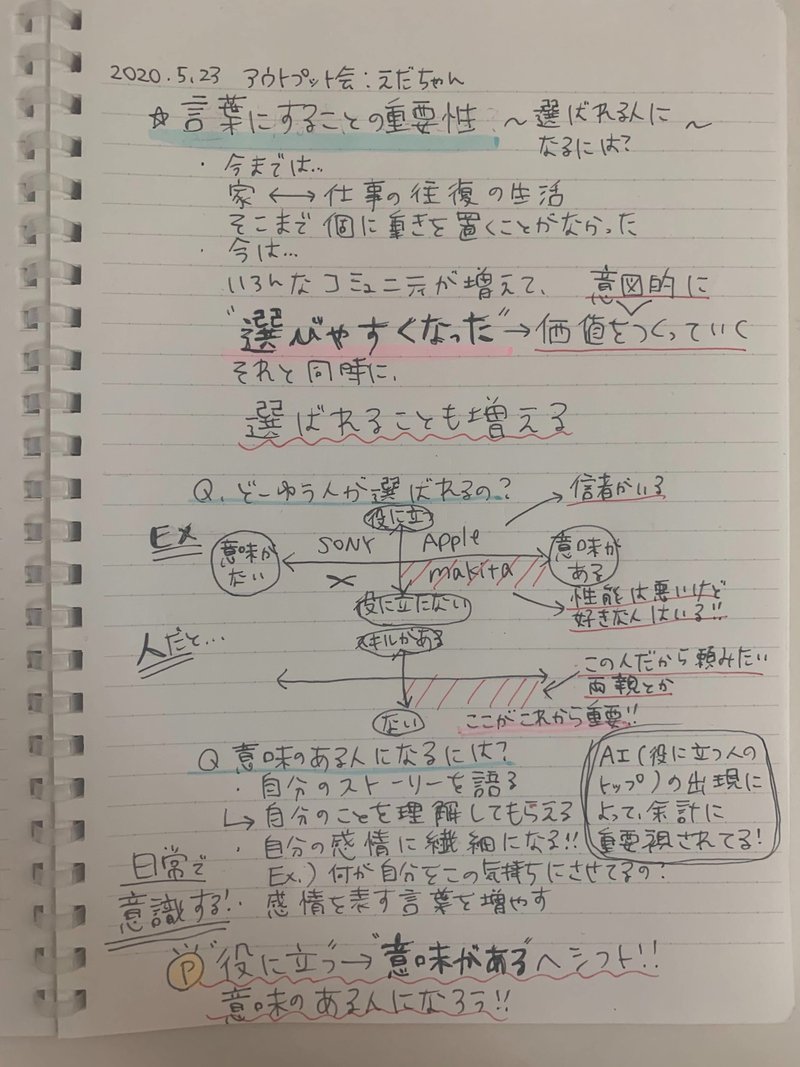 2020.5.23 アウトプット会:えだちゃん
☆言葉にすることの重要性 〜選ばれる人に〜
なるには?
・今までは…
家 ⟷ 仕事の往復の生活
そこまで個に重きを置くことがなかった
・今は…
いろんなコミュニティが増えて、意図的に
"選びやすくなった"→価値をつくっていく
それと同時に、
選ばれることも増える
Q. どーゆう人が選ばれるの?
信者がいる
役に立つ
EX
意味がない
SONY Apple
意味がある
× makita
性能は悪いけど
好きな人はいる!!
役に立たない
人だと…
スキルがある
この人だから頼みたい
両親とか
ない
ここがこれから重要!!
Q 意味のある人になるには?
・自分のストーリーを語る
↳自分のことを理解してもらえる
・自分の感情に繊細になる!!
Ex.) 何が自分をこの気持ちにさせてるの?
・感情を表す言葉を増やす
AI(役に立つ人の
トップ)の出現に
よって、余計に
重要視されてる!
日常で
意識する!
P "役に立つ"→"意味がある"へシフト!!
意味のある人になろう!!